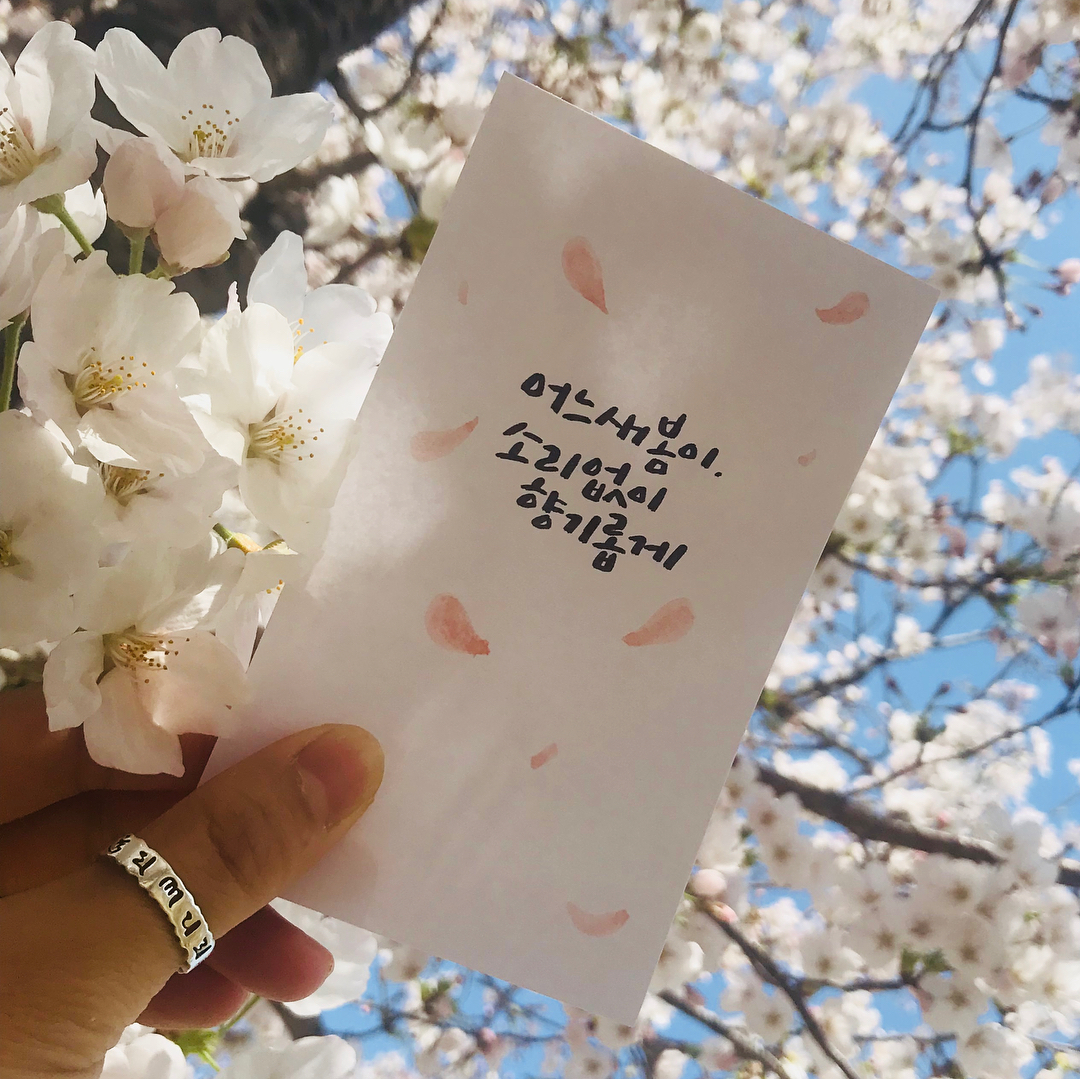 어느새봄이.
소리없이
향기롭게